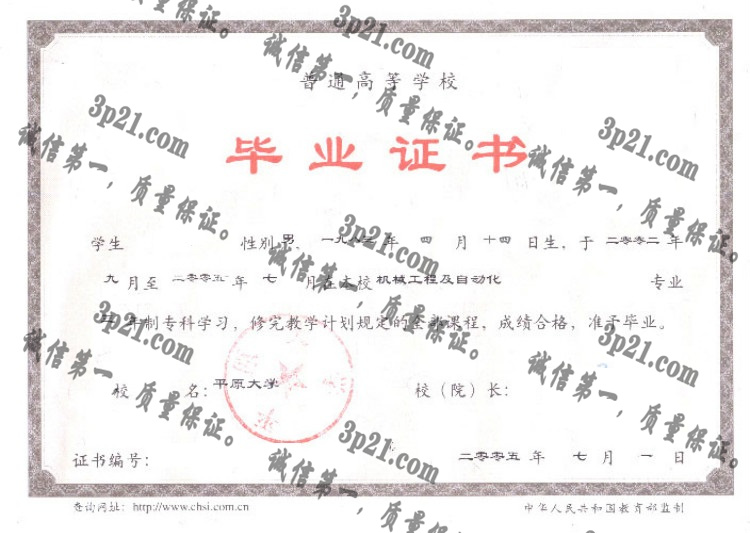 普通高等学校
毕业证书
学生 性别 男，一九八三年 四 月 十四 日生，于 二零零二 年
九 月至 二零零五 年 七 月在本校 机械工程及自动化 专业
年制专科学习，修完教学计划规定的全部课程，成绩合格，准予毕业。
校 名：平原大学 校（院）长：
证书编号： 二零零五 年 七 月 一 日
查询网址：http://www.chsi.com.cn 中华人民共和国教育部监制
诚信第一，质量保证。
3p21.com
诚信第一，质量保证。
3p21.com
诚信第一，质量保证。
3p21.com
诚信第一，质量保证。
3p21.com
诚信第一，质量保证。
3p21.com
诚信第一，质量保证。
3p21.com
诚信第一，质量保证。
3p21.com
诚信第一，质量